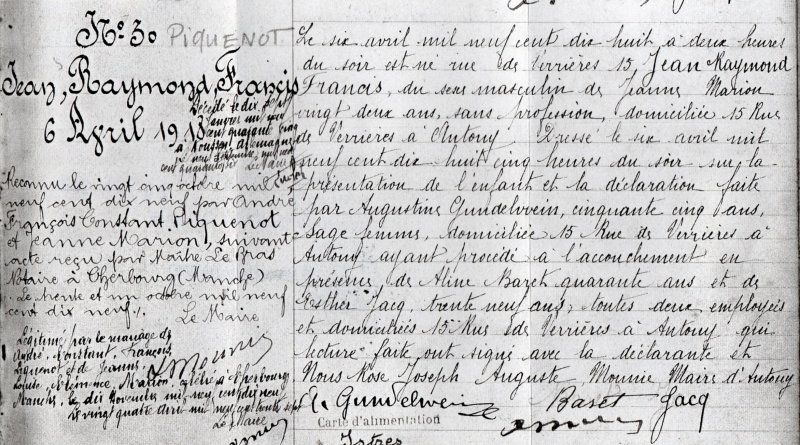 N° 30 PIQUENOT
Jean, Raymond, Francis
6 April 1918
Décédé le dix sept
Janvier mil neuf
cent quarante cinq
à
Le Maire
Reconnu le vingt cinq octobre mil
neuf cent dix neuf par André
François Constant, Piquenot
et Jeanne Marion, suivant
acte reçu par Maître Le Bras
Notaire à Cherbourg (Manche)
Le trente et un octobre mil neuf
cent dix neuf.
Le Maire
Légitimé par le mariage de
André, Constant, François
Piquenot et de Jeanne
Marion, célébré à Cherbourg
Manche, le dix novembre mil neuf cent dix neuf
Le vingt quatre
Le Maire
Le six avril mil neuf cent dix huit à deux heures
du soir est né rue de Verrières 15, Jean Raymond
Francis, du sexe masculin de Jeanne Marion
vingt deux ans, sans profession, domiciliée 15 Rue
de Verrières à Antony. Dressé le six avril mil
neuf cent dix huit cinq heures du soir sur la
présentation de l'enfant et la déclaration faite
par Augustine Gundelwein, cinquante cinq ans,
sage femme, domiciliée 15 Rue de Verrières à
Antony ayant procédé à l'accouchement en
présence de Aline Baret quarante ans et de
Esther Jacq, trente neuf ans, toutes deux employées
et domiciliées 15 Rue de Verrières à Antony qui
lecture faite ont signé avec la déclarante et
Nous Rose Joseph Auguste, Mounié Maire d'Antony
A. Gundelwein Baret Jacq
Carte d'alimentation